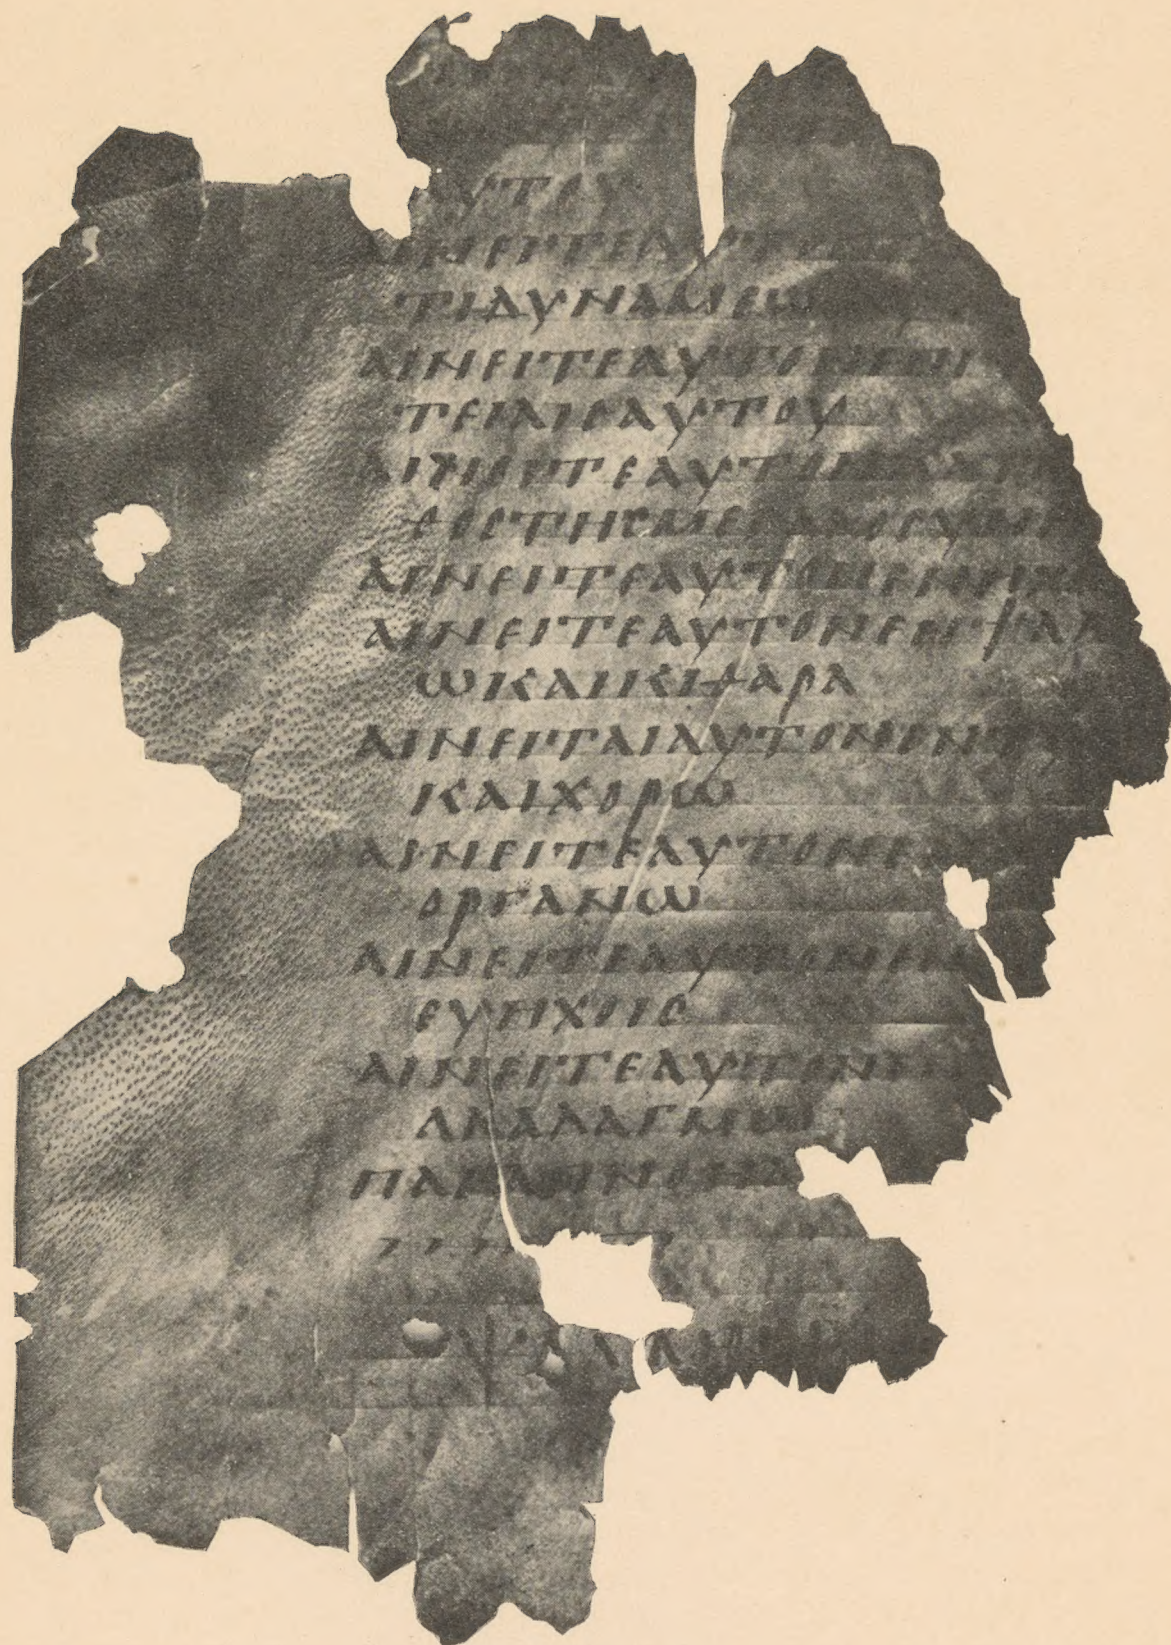 ΑΥΤΟΥ
ΑΙΝΕΙΤΕΑΥΤΟΝ
ΤΙΔΥΝΑΜΕΩ
ΑΙΝΕΙΤΕΑΥΤΟΝΕΠΙ
ΤΕΙΑΙΣΑΥΤΟΥ
ΑΙΝΕΙΤΕΑΥΤΟΝΚΑΤΑ
ΘΟΣΤΗΣΜΕΓΑΛΟΣΥΝΗΣ
ΑΙΝΕΙΤΕΑΥΤΟΝΕΝΗΧ
ΑΙΝΕΙΤΕΑΥΤΟΝΕΝΨΑΛ
ΩΚΑΙΚΙΘΑΡΑ
ΑΙΝΕΙΤΑΙΑΥΤΟΝΕΝΤ
ΚΑΙΧΟΡΩ
ΑΙΝΕΙΤΕΑΥΤΟΝΕΝ
ΟΡΓΑΝΩ
ΑΙΝΕΙΤΕΑΥΤΟΝΕΝ
ΕΥΗΧΟΙΣ
ΑΙΝΕΙΤΕΑΥΤΟΝΕ
ΑΛΑΛΑΓΜΟΥ
ΠΑΣΑΠΝΟΗΑ
ΨΑΛΜ